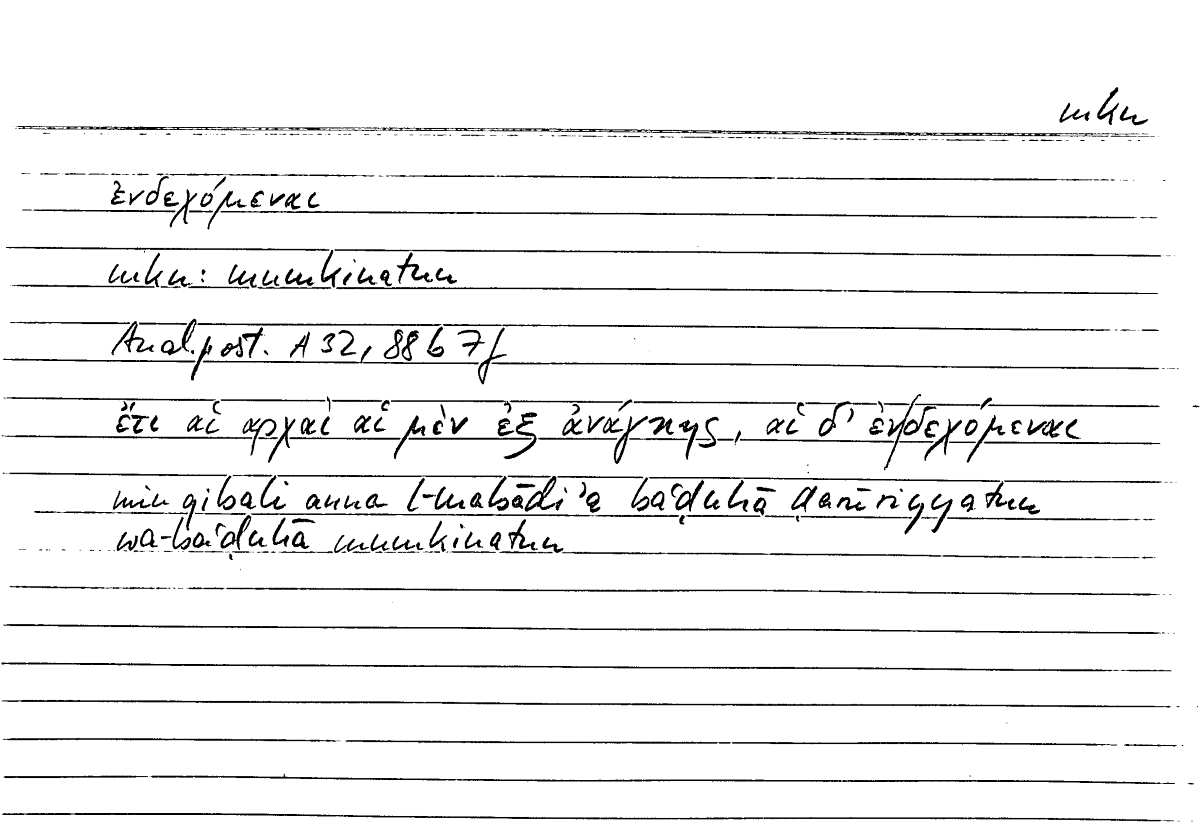 mkn
ἐνδεχόμεναι
mkn: mumkinatun
Anal. post. A 32, 88 b 7f
ἔτι αἱ αρχαὶ αἱ μὲν ἐξ ἀνάγκης, αἱ δ' ἐνδεχόμεναι
min qibali anna l-mabādi'a ba'ḍuhā ḍarūriyyatun
wa-ba'ḍuhā mumkinatun